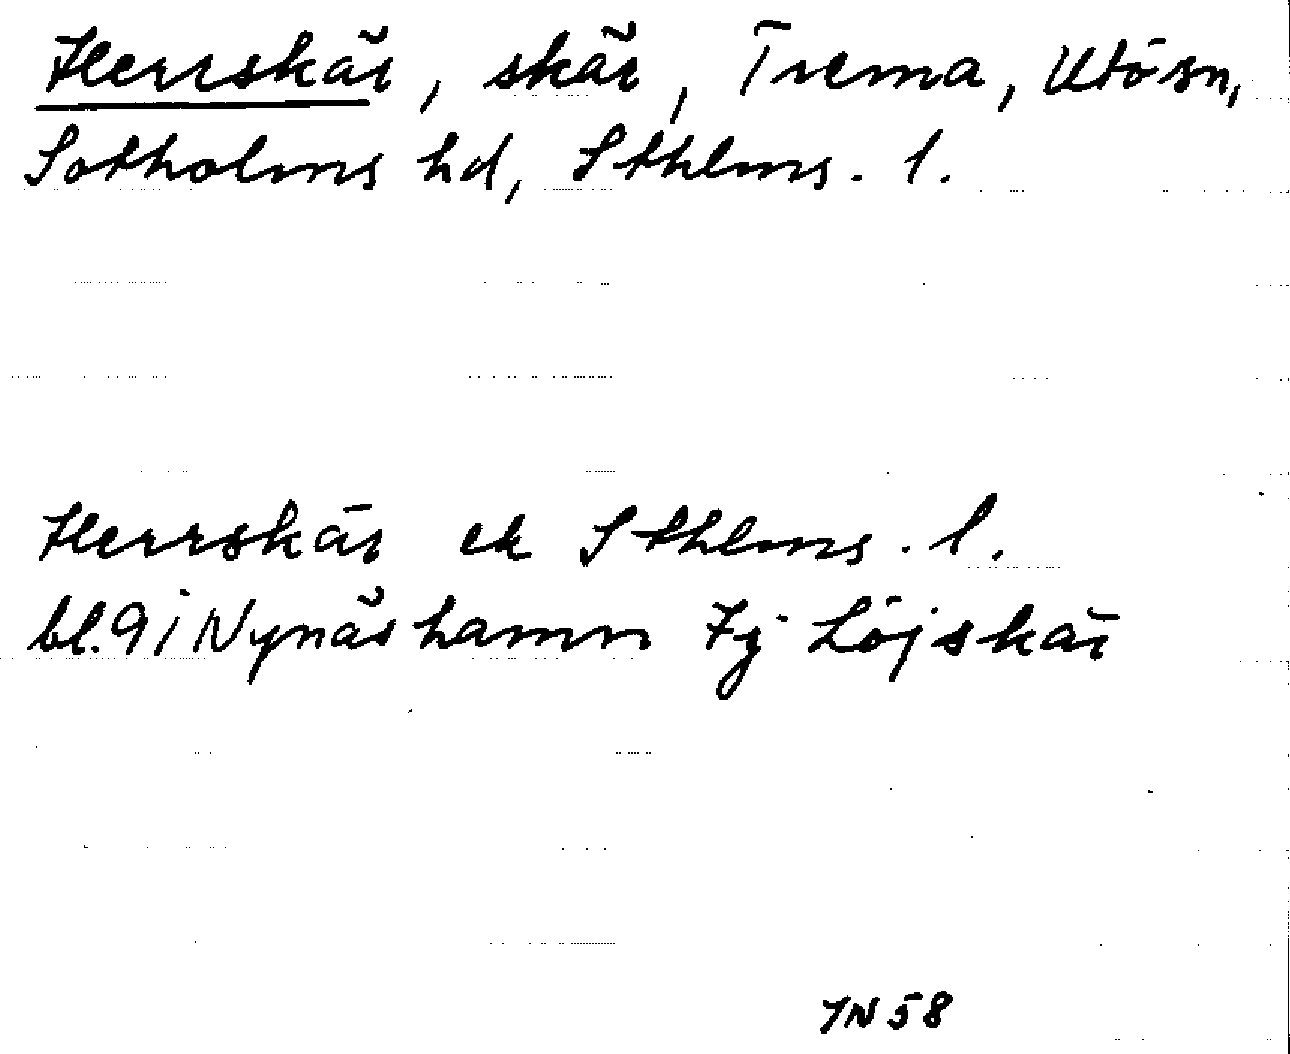 Herrskär, skär, Trema, Utö sn,
Sotholms hd, Sthlms. l.
Herrskär ek Sthlms. l.
bl. 91 Nynäshamn Fj Löjskär
YN 58